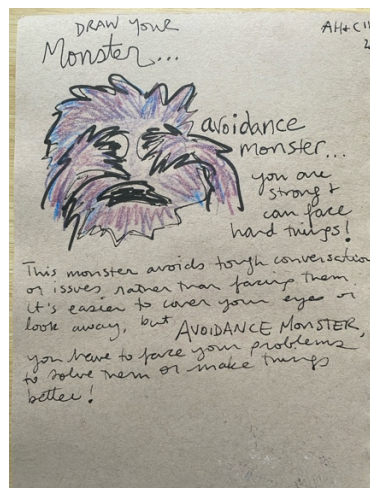 DRAW YOUR
Monster...
AH+C
avoidance
monster...
you are
strong &
can face
hard things!
This monster avoids tough conversation
or issues rather than facing them.
it's easier to cover your eyes or
look away, but AVOIDANCE MONSTER,
you have to face your problems
to solve them or make things
better!